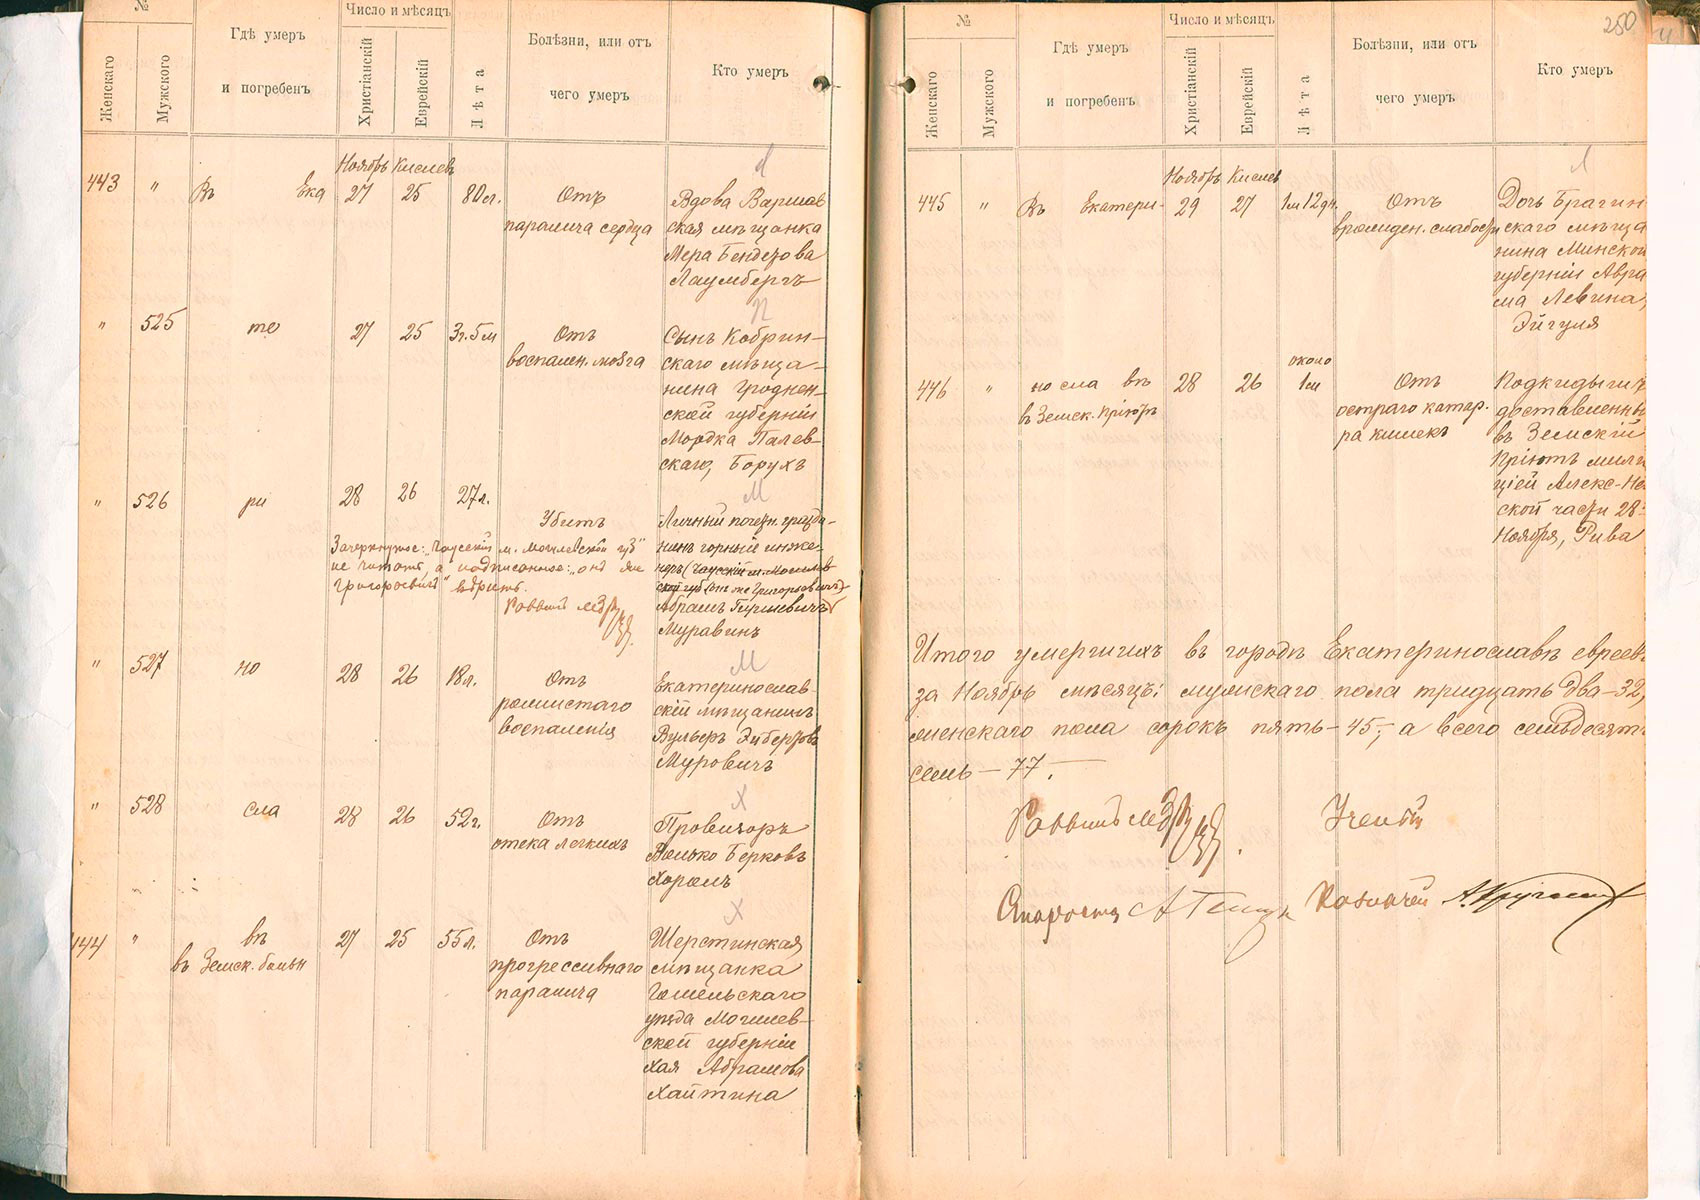 №
Женскаго
Мужского
Гдѣ умеръ
и погребенъ
Число и мѣсяцъ
Христіанскій
Еврейскій
Лѣта
Болѣзни, или отъ
чего умеръ
Кто умеръ
Ноябрь Кислевъ
443 " Въ Ека 27 25 80 л. Отъ
паралича сердца
Вдова Варшав
ская мѣщанка
Мера Бендетова
Лаумбергъ
" 525 те 27 25 3г. 5м Отъ
воспален. мозга
Сынъ Кобрин-
скаго мѣща-
нина Гроднен-
ской губерніи
Мордка Палев-
скаго, Борухъ
М
" 526 ри 28 26 27л.
Убитъ
Личный почетн. гражда-
нинъ горный инже-
неръ (Чаусскій м. Могилев
ской губ) (онъ же Григорьевичъ)
Абрамъ Гиршевичъ
Муравинъ
Зачеркнутое: „Чаусскій м. Могилевской губ"
не читать, а надписанное: „онъ же
Григорьевичъ" вѣрить.
Раввинъ
М
" 527 но 28 26 18л. Отъ
рожистаго
воспаленія
Екатеринослав-
скій мѣщанинъ
Вульфъ
Муровичъ
Х
" 528 сла 28 26 52г. Отъ
отека легкихъ
Провизоръ
Волько Берковъ
Хоромъ
Х
444 " въ 27 25 55л. Отъ
въ Земск. больн
прогрессивнаго
паралича
Шерстинская
мѣщанка
Гомельскаго
уѣзда Могилев-
ской губерніи
Хая Абрамова
Хайтина
250
№
Женскаго
Мужского
Гдѣ умеръ
и погребенъ
Число и мѣсяцъ
Христіанскій
Еврейскій
Лѣта
Болѣзни, или отъ
чего умеръ
Кто умеръ
Л
Ноябрь Кислев
445 " Въ Екатери- 29 27 1м 12дн. Отъ
врожден. слабости
Дочь Брагин
скаго мѣща
нина Минской
губерніи Авра
ма Левина,
Эйгуля
446 "носла въ 28 26 около
1м Отъ
въ Земск. Пріютѣ
остраго катар.
ра кишекъ
Подкидышъ
доставленны
въ Земскій
Пріютъ мили
ціей Алекс-Не
ской части 28-
Ноября, Рива
Итого умершихъ въ городѣ Екатеринославѣ евреевъ
за Ноябрь мѣсяцъ: мужскаго пола тридцать два-32,
женскаго пола сорокъ пять-45, а всего семьдесятъ
семь-77.
Раввинъ
Ученый
Староста
Казначей